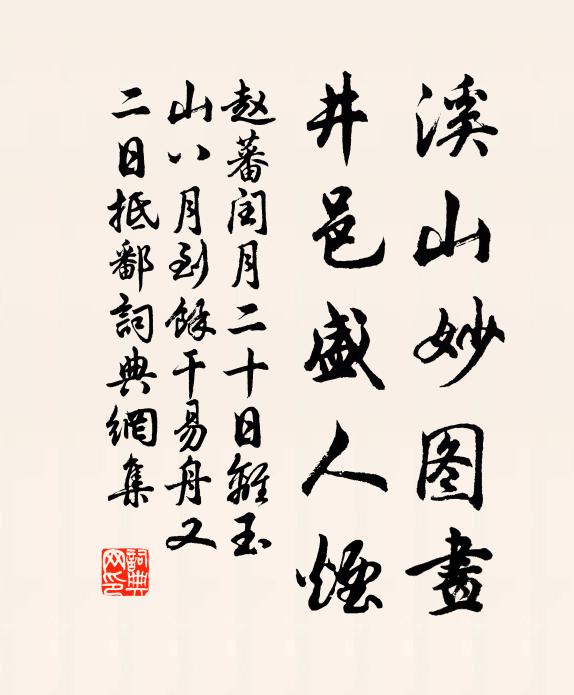 溪山妙图畫
井邑盛人煙
赵蕃闰月二十日離玉
山八月到餘干易舟又
二日抵鄱詞典網集
詞典网印